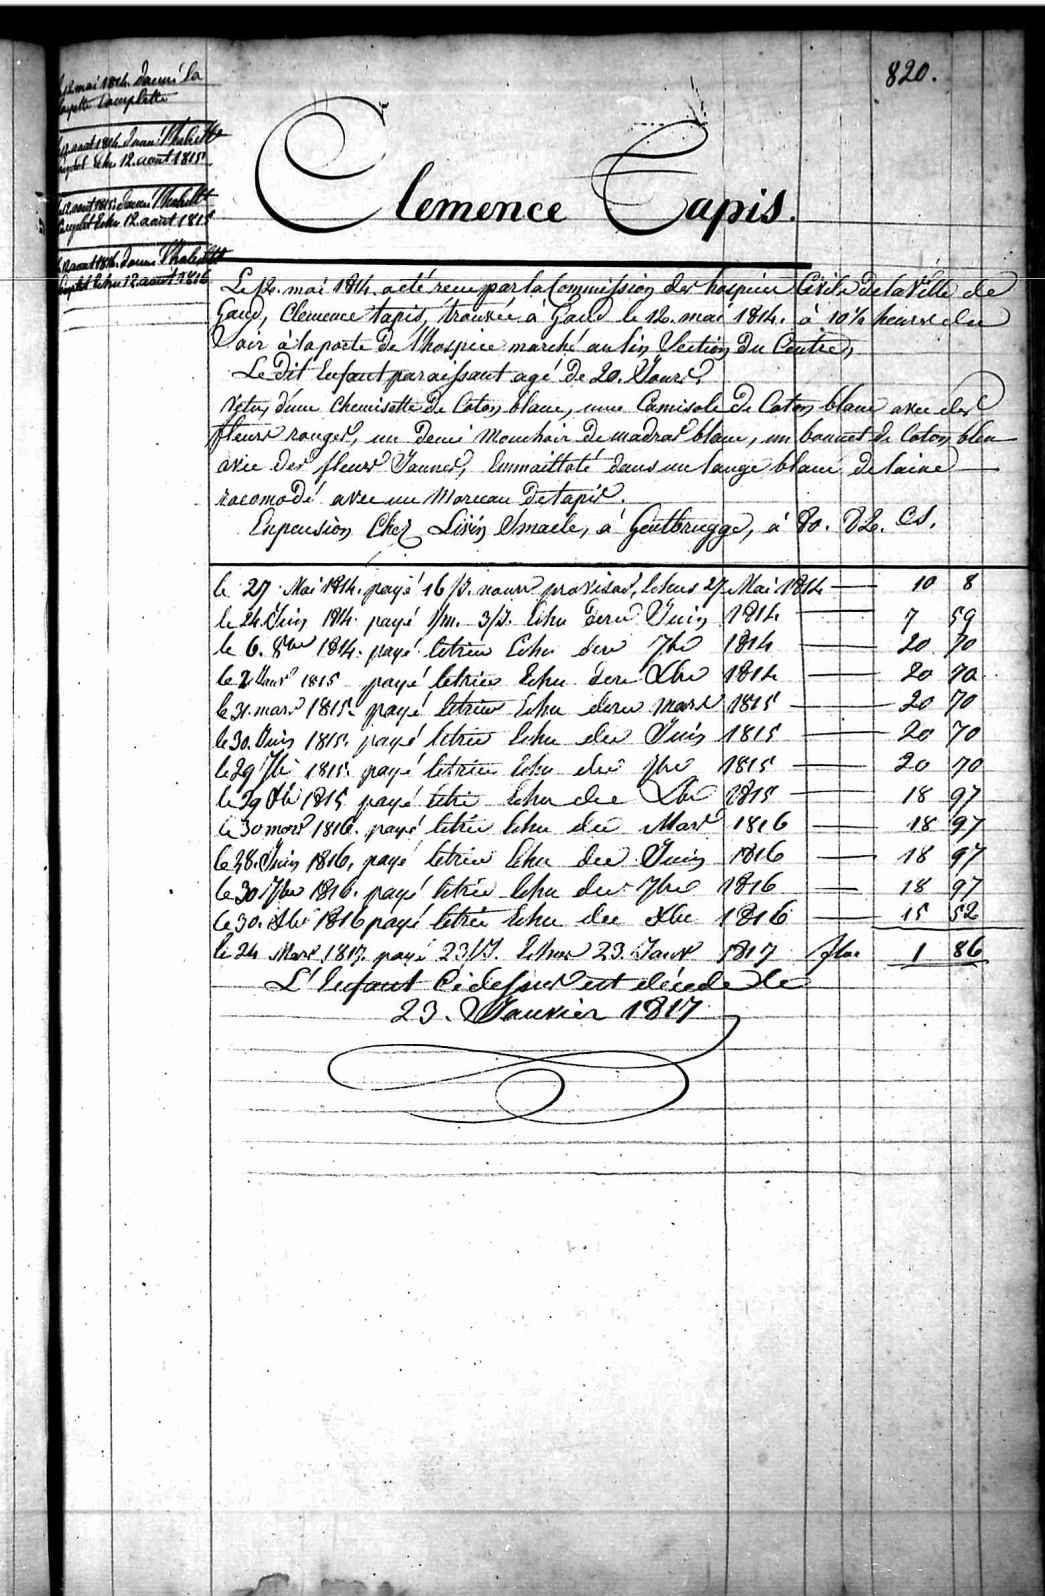 820.
mai 1814. donné la
layette complette
aout 1814. donné l'habillt
complet Echu 12. aout 1815
12 aout 1815. donné l'habillt
complet Echu 12 aout 1815
aout 1816. donné l'habillt
complet Echu 12 aout 1816
Clemence Tapis.
Le 12. mai 1814. a été recu par la Commission des hospices Civils de la Ville de
Gand, Clemence tapis, trouvée à Gand le 12. mai 1814. à 10½ heures du
Soir à la porte de l'hospice marché au lin Section du Centre,
Le Dit Enfant paraissant agé de 20. Jours.
Vetu, d'une chemisette De Coton blanc, une Camisole De Coton blanc avec des
fleurs rouges, un demi Mouchoir de madras blanc, un bonnet de Coton bleu
avec des fleurs Jaunes, Emmailloté dans un lange blanc de laine
racomodé avec un Morceau De tapis.
En pension Chez Livin Smaele, à Gentbrugge, à 80. 82. Cs.
le 27. Mai 1814. payé 16/J. nourr provisoir, Echus 27 Mai 1814 — 10 8
le 24. Juin 1814. payé 1/m. 3/J. Echu dern Juin 1814 — 7 59
le 6. 8bre 1814. payé letrim Echu dern 7bre 1814 — 20 70
le 2 Janvr 1815 payé letrim Echu dern Xbre 1814 — 20 70
le 31. mars 1815. payé letrim Echu dern mars 1815 — 20 70
le 30. Juin 1815. payé letrim Echu der Juin 1815 — 20 70
le 29 7bre 1815. payé letrim Echu der 7bre 1815 — 20 70
le 29 Xbre 1815 payé letrim Echu der Xbre 1815 — 18 97
le 30 mars 1816. payé letrim Echu der Mars 1816 — 18 97
le 28. Juin 1816, payé letrim Echu der Juin 1816 — 18 97
le 30 7bre 1816. payé letrim Echu der 7bre 1816 — 18 97
le 30. Xbre 1816 payé letrim Echu der Xbre 1816 — 15 52
le 24 Mars 1817. payé 23/J. Echus 23. Janvr 1817 1 86
L'Enfant Cidessus est décedé le
23. Janvier 1817